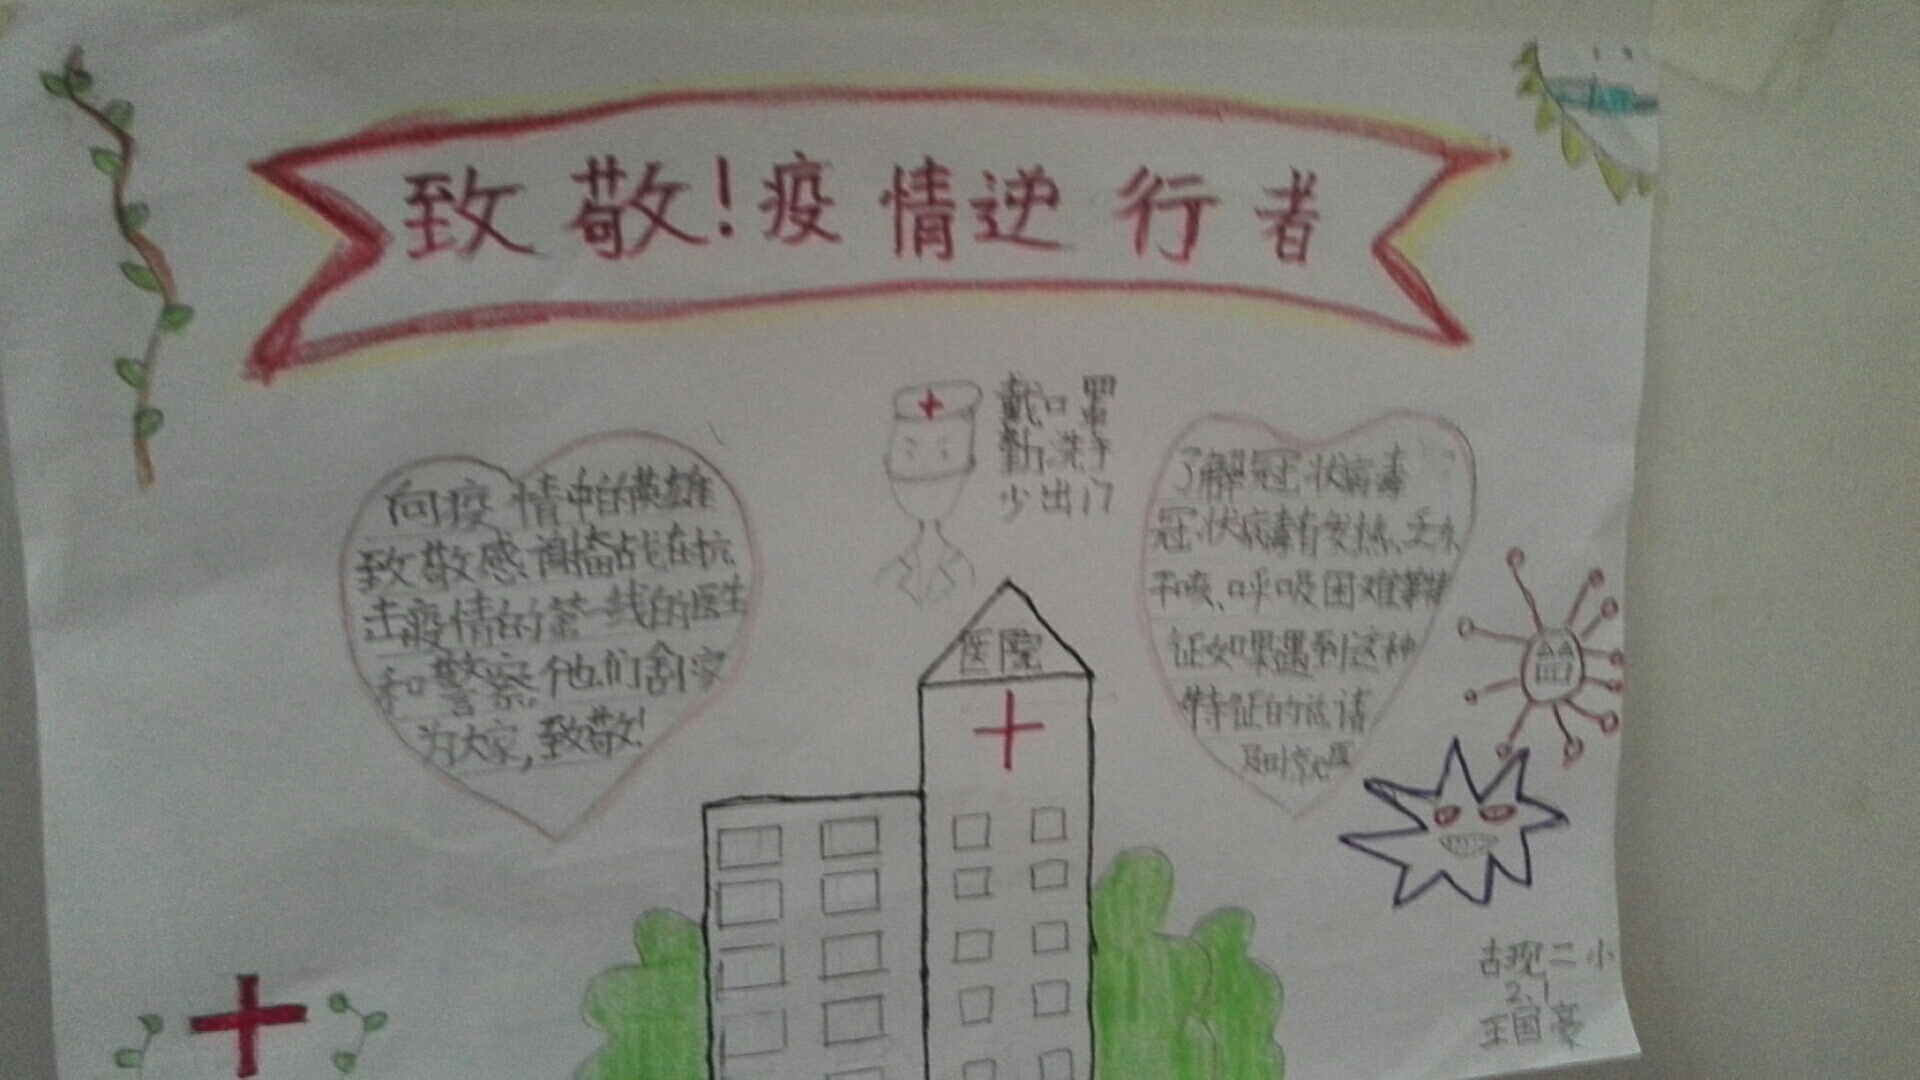 致敬！疫情逆行者
戴口罩
勤洗手
少出门
向疫情中的英雄
致敬感谢奋战在抗
击疫情的第一线的医生
和警察,他们舍家
为大家,致敬!
了解冠状病毒
冠状病毒有发热、乏力、
干咳、呼吸困难等特
征如果遇到这种
特征的话请
及时就医
医院
古现二小
2.1
王国豪